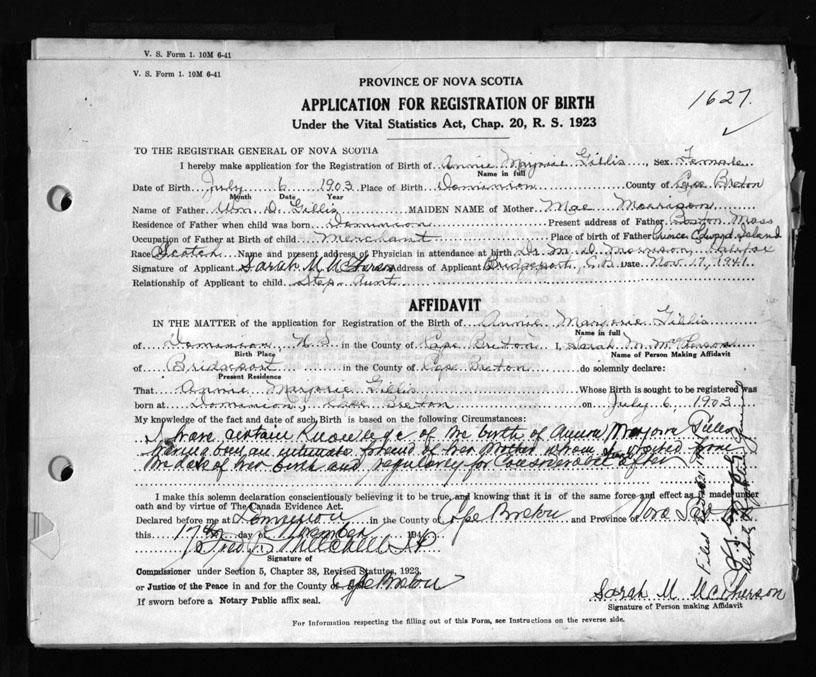 V. S. Form 1. 10M 6-41
V. S. Form 1. 10M 6-41
PROVINCE OF NOVA SCOTIA
1627.
APPLICATION FOR REGISTRATION OF BIRTH
Under the Vital Statistics Act, Chap. 20, R. S. 1923
TO THE REGISTRAR GENERAL OF NOVA SCOTIA
I hereby make application for the Registration of Birth of Annie Marjorie Gillis, Sex Female
Name in full
Date of Birth July 6 1903 Place of Birth Dominion County of Cape Breton
Month Date Year
Name of Father Wm D. Gillis MAIDEN NAME of Mother Mae Morrison
Residence of Father when child was born Dominion Present address of Father Boston Mass
Occupation of Father at Birth of child Merchant Place of birth of Father Prince Edward Island
Race Scotch Name and present address of Physician in attendance at birth Dr M. D. Morrison, Halifax
Signature of Applicant Sarah M McPherson Address of Applicant Bridgeport, C.B. Date Nov. 17, 1941.
Relationship of Applicant to child Step-Aunt
AFFIDAVIT
IN THE MATTER of the application for Registration of the Birth of Annie Marjorie Gillis
Name in full
of Dominion, N.S. in the County of Cape Breton I, Sarah M. McPherson
Birth Place Name of Person Making Affidavit
of Bridgeport in the County of Cape Breton do solemnly declare:
Present Residence
That Annie Marjorie Gillis Whose Birth is sought to be registered was
born at Dominion, Cape Breton on July 6, 1903
My knowledge of the fact and date of such Birth is based on the following Circumstances:
I have certain Knowledge of the birth of Annie Marjorie Gillis
having been an intimate friend of her Mother whom I visited from
the date of her birth and regularly for considerable after
I make this solemn declaration conscientiously believing it to be true, and knowing that it is of the same force and effect as if made under
oath and by virtue of The Canada Evidence Act.
Declared before me at Dominion in the County of Cape Breton and Province of Nova Scotia
this 17th day of November 1941
Fred J. Mitchell J.P.
Signature of
Commissioner under Section 5, Chapter 38, Revised Statutes, 1923,
or Justice of the Peace in and for the County of Cape Breton
If sworn before a Notary Public affix seal.
Sarah M McPherson
Signature of Person making Affidavit
For Information respecting the filling out of this Form, see Instructions on the reverse side.